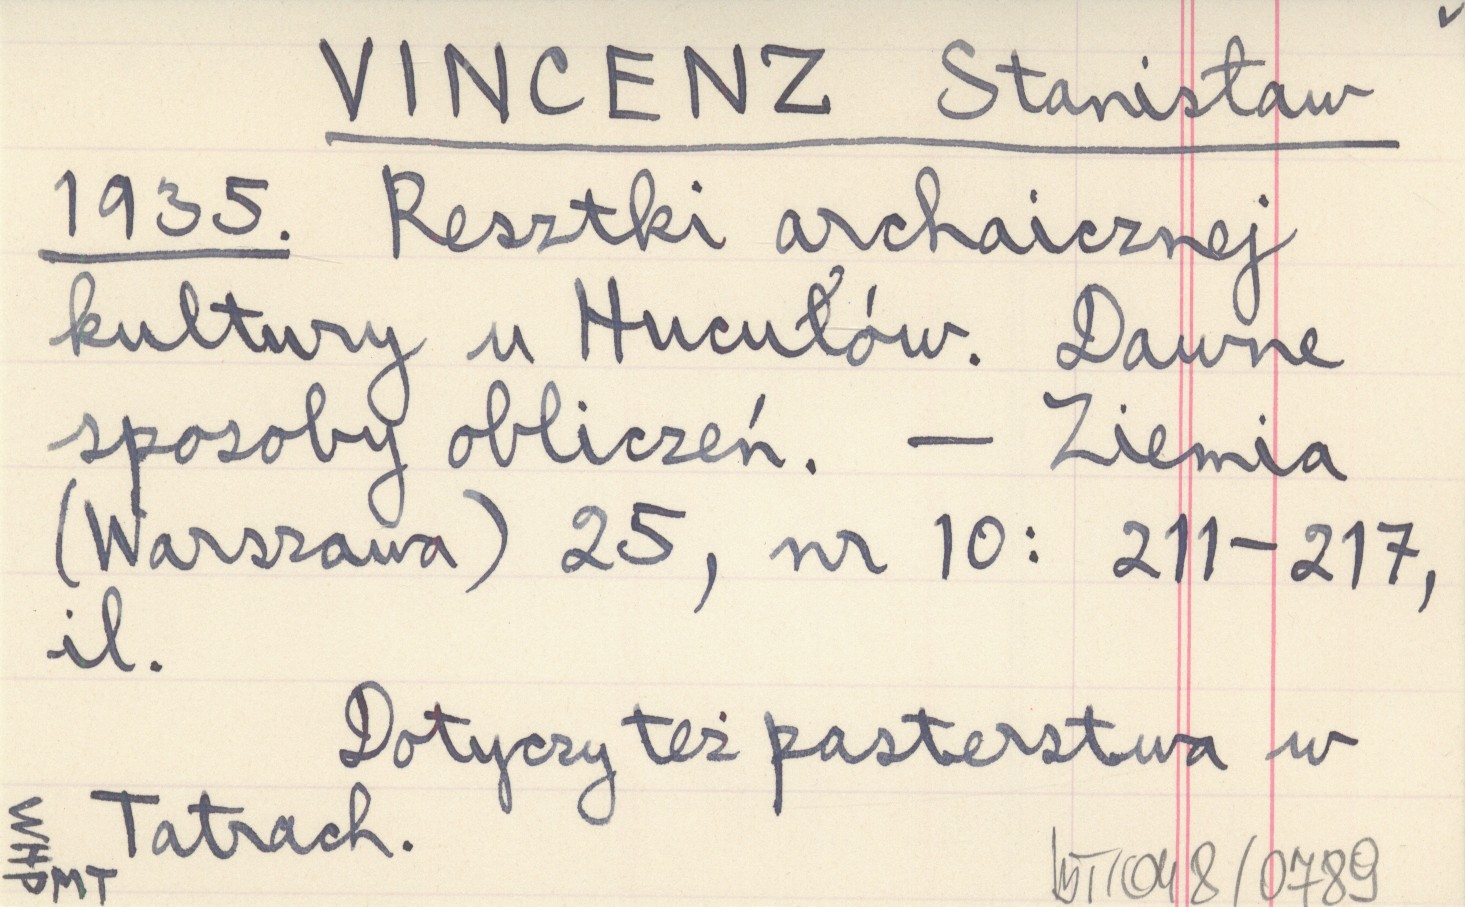 VINCENZ Stanisław
1935. Resztki archaicznej
kultury u Hucułów. Dawne
sposoby obliczeń. — Ziemia
(Warszawa) 25, nr 10: 211-217,
il.
Dotyczy też pasterstwa w
Tatrach.
WHP
MT
8/0789